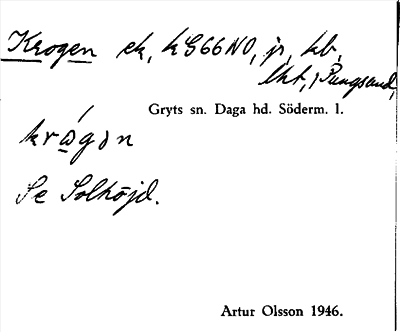 Krogen ek, k S66NO, jr, hb,
lht., Pungsund,
Gryts sn. Daga hd. Söderm. l.
Se Solhöjd.
Artur Olsson 1946.